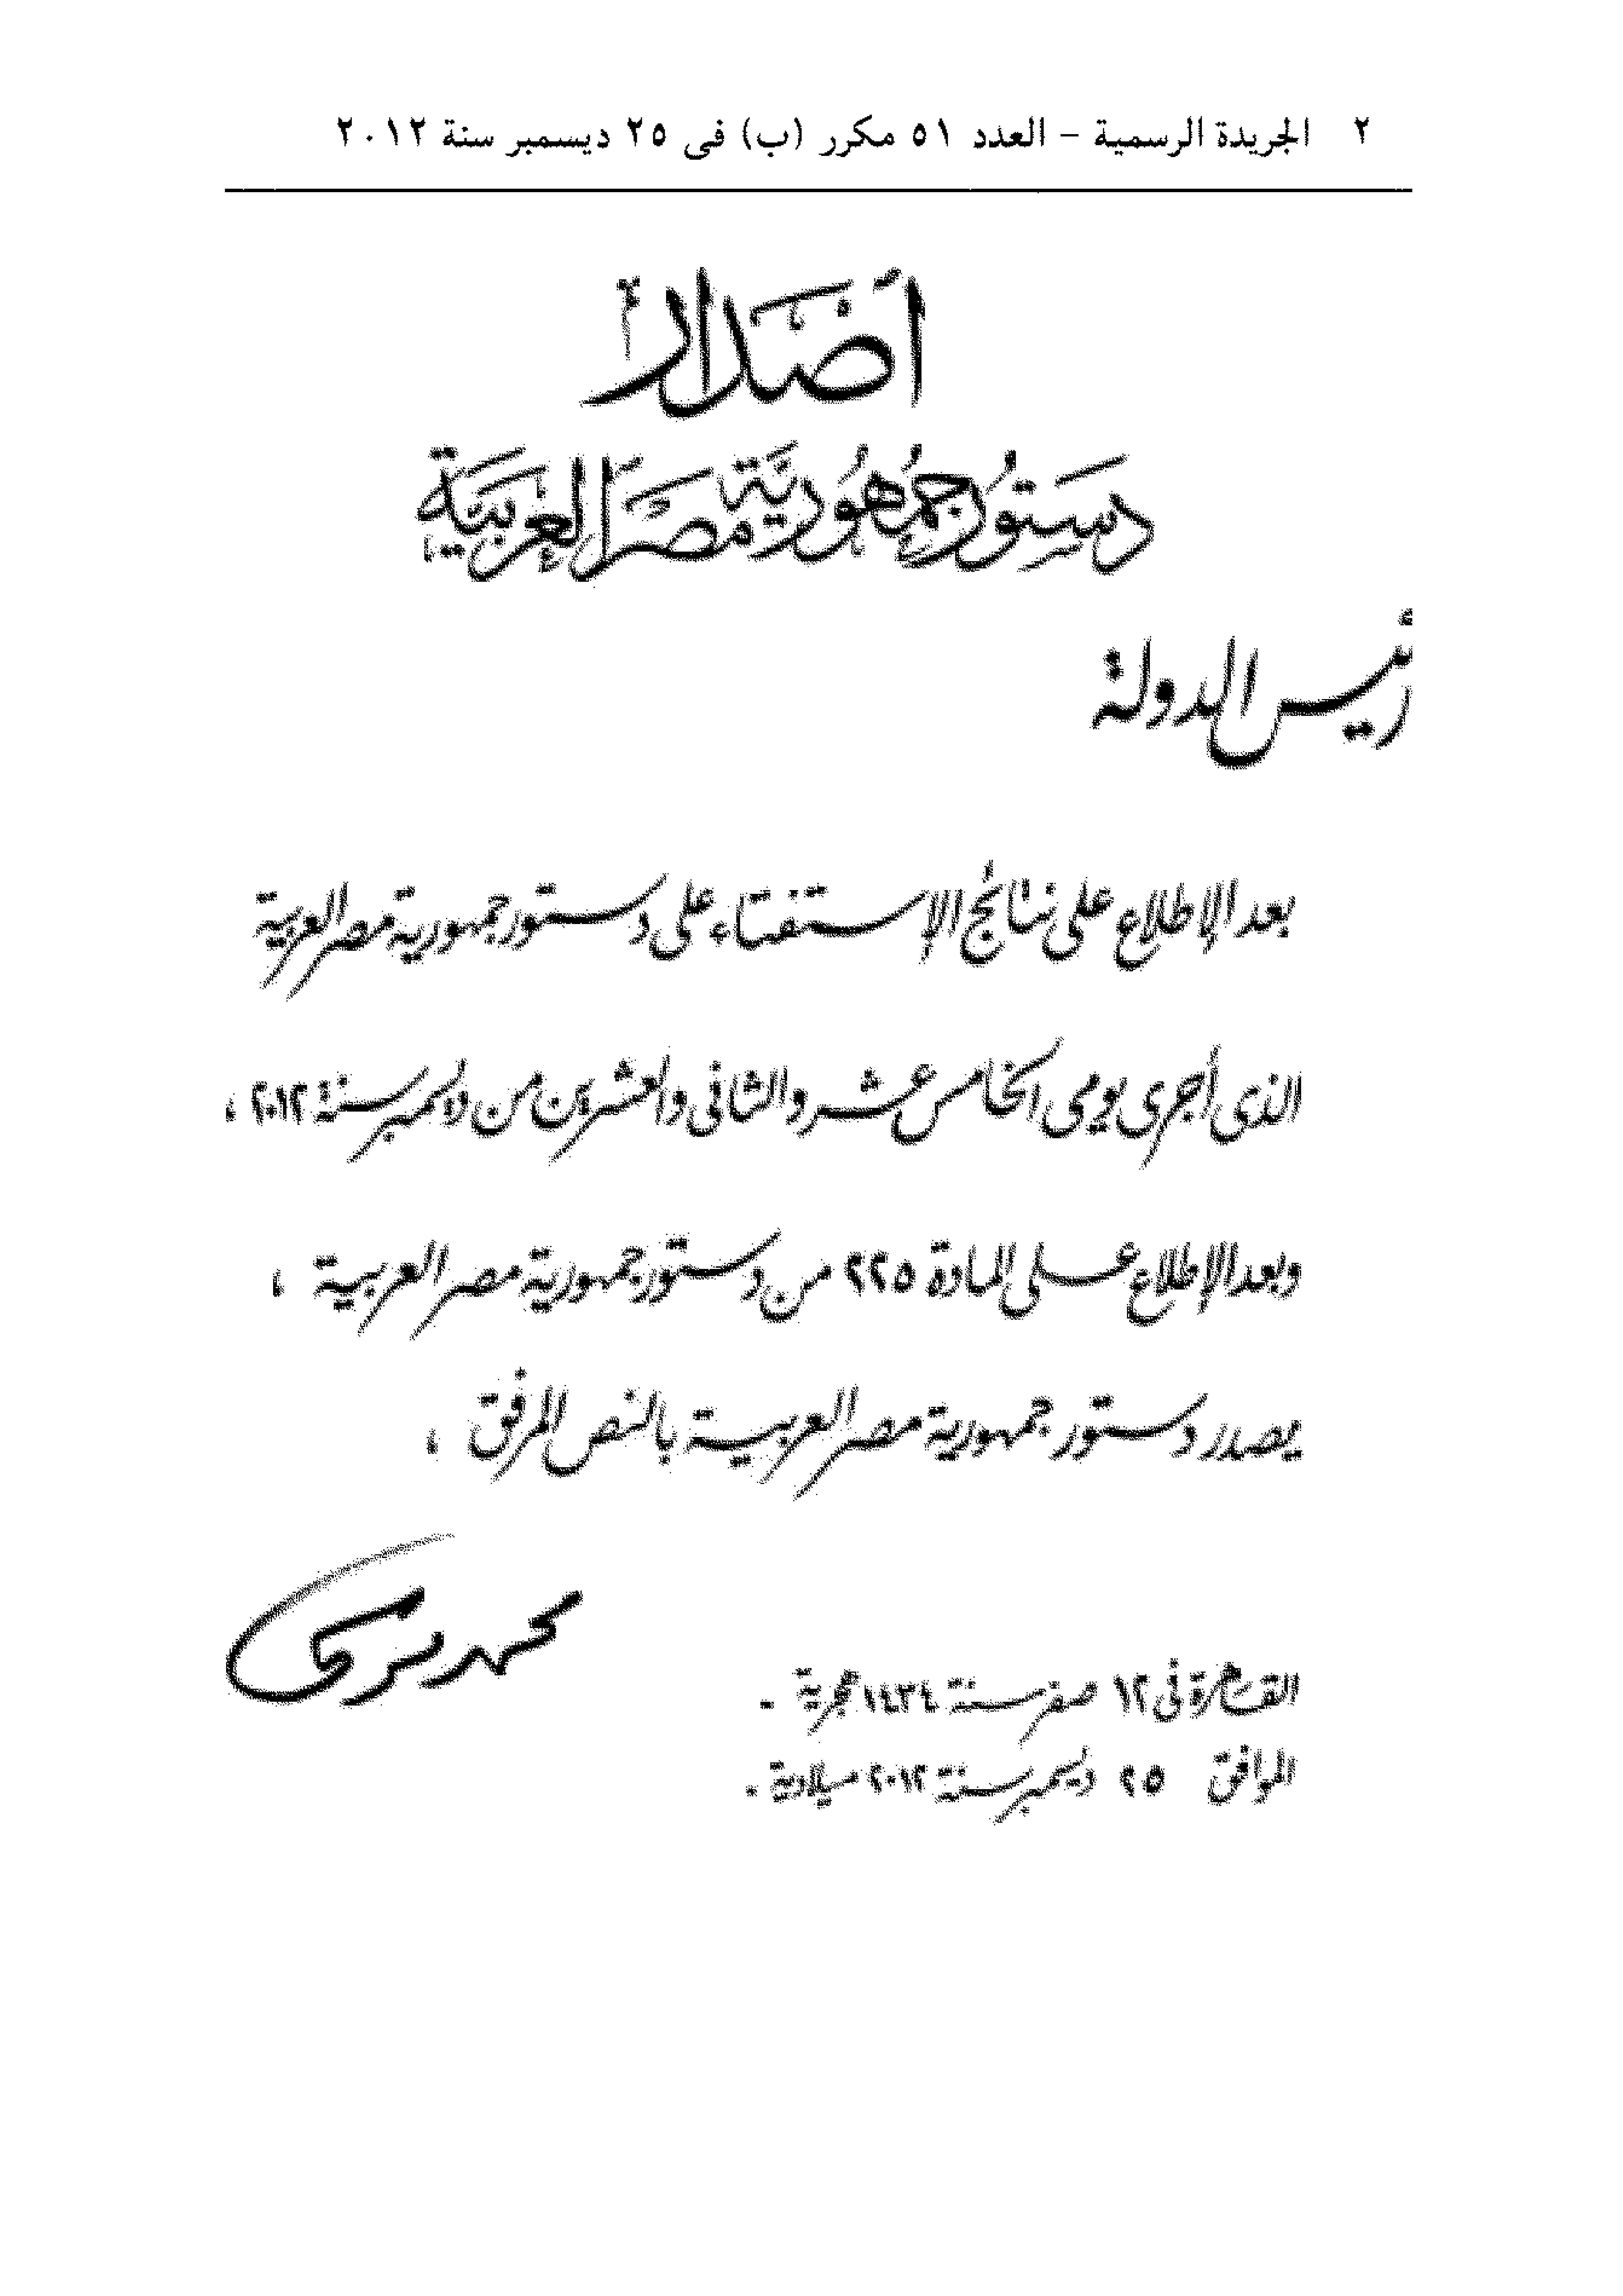 ٢ الجريدة الرسمية – العدد ٥١ مكرر (ب) فى ٢٥ ديسمبر سنة ٢٠١٢
إصدار
دستور جمهورية مصر العربية
رئيس الدولة
بعد الإطلاع على نتائج الإستفتاء على دستور جمهورية مصر العربية
الذى أجرى يومى الخامس عشر والثانى والعشرين من ديسمبر سنة ٢٠١٢ ،
وبعد الإطلاع على المادة ٢٢٥ من دستور جمهورية مصر العربية ،
يصدر دستور جمهورية مصر العربية بالنص المرفق ،
محمد مرسى
القاهرة فى ١٢ صفر سنة ١٤٣٤ هجرية .
الموافق ٢٥ ديسمبر سنة ٢٠١٢ ميلادية .